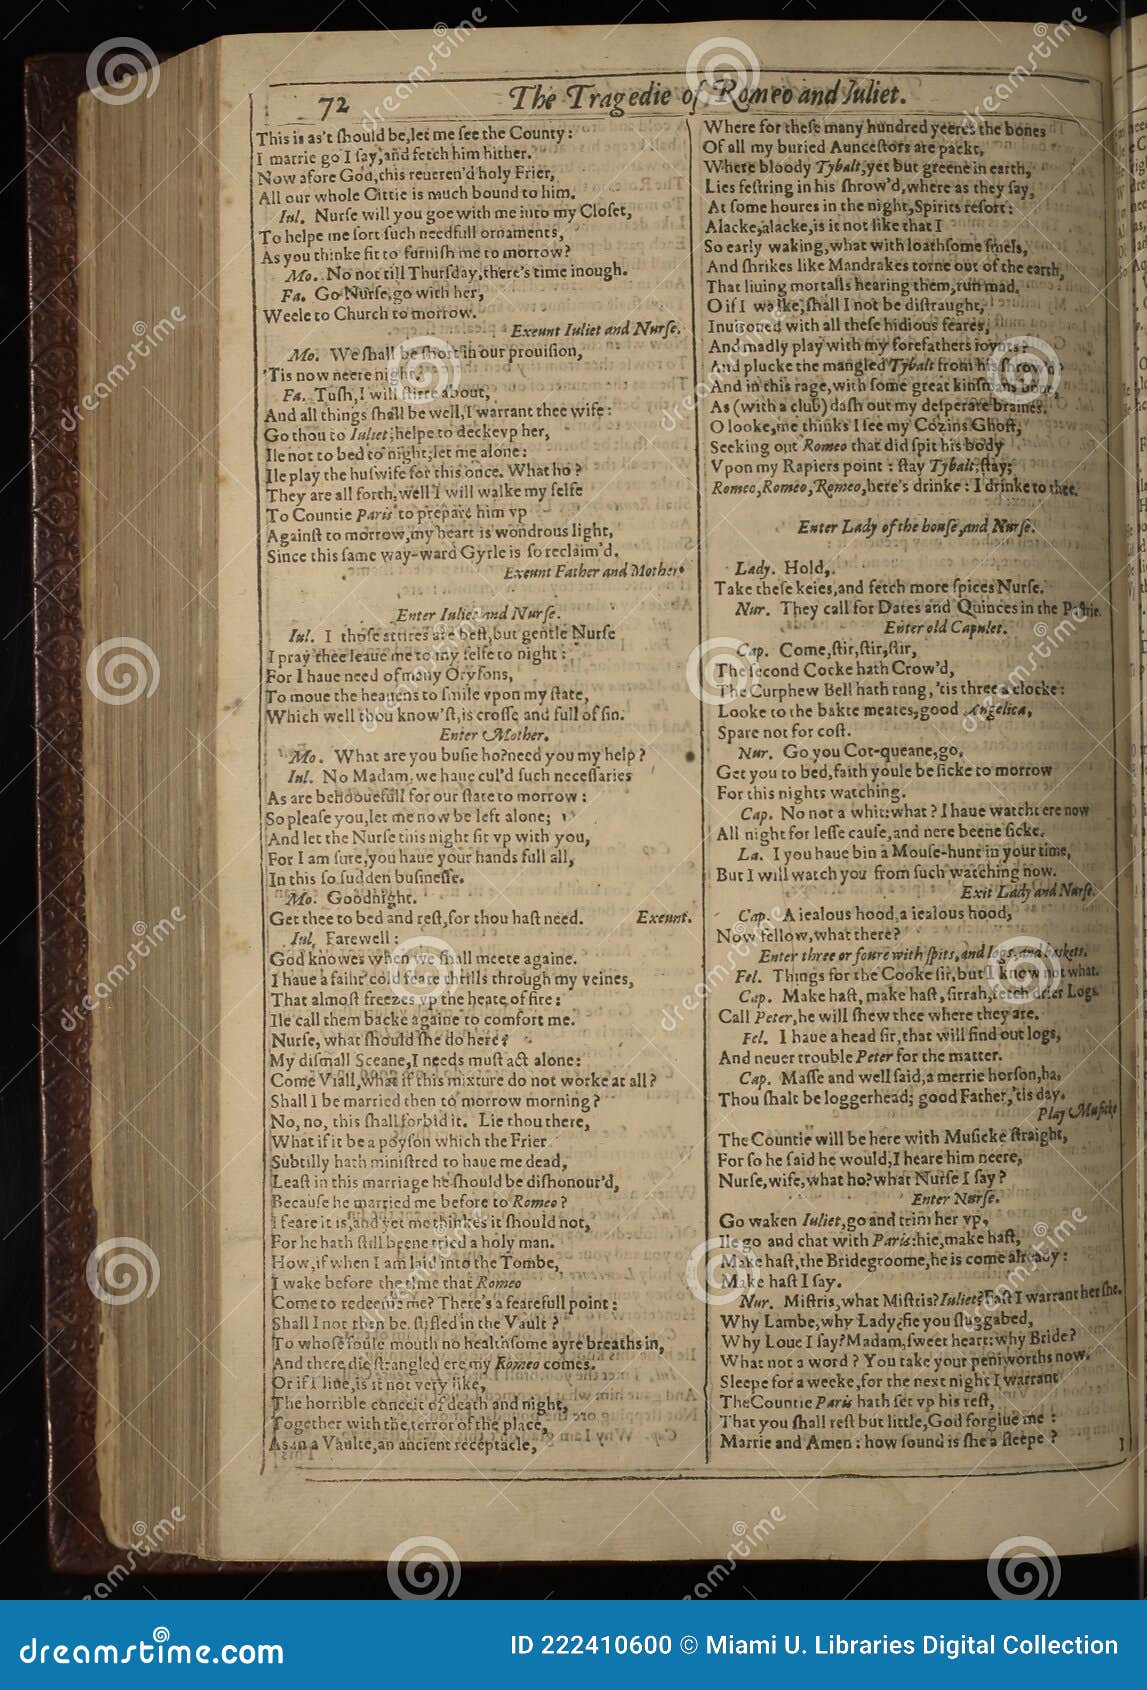 72
The Tragedie of Romeo and Iuliet.
This is as't ſhould be, let me ſee the County:
I marrie go I ſay, and fetch him hither.
Now afore God, this reueren'd holy Frier,
All our whole Cittie is much bound to him.
Iul. Nurſe will you goe with me into my Cloſet,
To helpe me ſort ſuch needfull ornaments,
As you thinke fit to furniſh me to morrow?
Mo. No not till Thurſday, there's time inough.
Fa. Go Nurſe, go with her,
Weele to Church to morrow.
Exeunt Iuliet and Nurſe.
Mo. We ſhall be ſhort in our prouiſion,
'Tis now neere night.
Fa. Tuſh, I will ſtirre about,
And all things ſhall be well, I warrant thee wife:
Go thou to Iuliet, helpe to decke vp her,
Ile not to bed to night, let me alone:
Ile play the huſwife for this once. What ho?
They are all forth, well I will walke my ſelfe
To Countie Paris to prepare him vp
Againſt to morrow, my heart is wondrous light,
Since this ſame way-ward Gyrle is ſo reclaim'd.
Exeunt Father and Mother.
Enter Iuliet and Nurſe.
Iul. I thoſe attires are beſt, but gentle Nurſe
I pray thee leaue me to my ſelfe to night:
For I haue need of many Oryſons,
To moue the heauens to ſmile vpon my ſtate,
Which well thou know'ſt, is croſſe and full of ſin.
Enter Mother.
Mo. What are you buſie ho? need you my help?
Iul. No Madam, we haue cul'd ſuch neceſſaries
As are behoouefull for our ſtate to morrow:
So pleaſe you, let me now be left alone;
And let the Nurſe this night ſit vp with you,
For I am ſure, you haue your hands full all,
In this ſo ſudden buſineſſe.
Mo. Goodnight.
Get thee to bed and reſt, for thou haſt need. Exeunt.
Iul. Farewell:
God knowes when we ſhall meete againe.
I haue a faint cold feare thrills through my veines,
That almoſt freezes vp the heate of fire:
Ile call them backe againe to comfort me.
Nurſe, what ſhould ſhe do here?
My diſmall Sceane, I needs muſt act alone:
Come Viall, what if this mixture do not worke at all?
Shall I be married then to morrow morning?
No, no, this ſhall forbid it. Lie thou there,
What if it be a poyſon which the Frier
Subtilly hath miniſtred to haue me dead,
Leaſt in this marriage he ſhould be diſhonour'd,
Becauſe he married me before to Romeo?
I feare it is, and yet me thinkes it ſhould not,
For he hath ſtill beene tried a holy man.
How, if when I am laid into the Tombe,
I wake before the time that Romeo
Come to redeeme me? There's a fearefull point:
Shall I not then be ſtifled in the Vault?
To whoſe foule mouth no healthſome ayre breaths in,
And there die ſtrangled ere my Romeo comes.
Or if I liue, is it not very like,
The horrible conceit of death and night,
Together with the terror of the place,
As in a Vaulte, an ancient receptacle,
Where for theſe many hundred yeeres the bones
Of all my buried Aunceſtors are packt,
Where bloody Tybalt, yet but greene in earth,
Lies feſtring in his ſhrow'd, where as they ſay,
At ſome houres in the night, Spirits reſort:
Alacke, alacke, is it not like that I
So early waking, what with loathſome ſmels,
And ſhrikes like Mandrakes torne out of the earth,
That liuing mortalls hearing them, run mad.
O if I walke, ſhall I not be diſtraught,
Inuironed with all theſe hidious feares,
And madly play with my forefathers ioynts?
And plucke the mangled Tybalt from his ſhrow'd?
And in this rage, with ſome great kinſmans bone,
As (with a club) daſh out my deſperate braines.
O looke, me thinks I ſee my Cozins Ghoſt,
Seeking out Romeo that did ſpit his body
Vpon my Rapiers point: ſtay Tybalt, ſtay;
Romeo, Romeo, Romeo, here's drinke: I drinke to thee.
Enter Lady of the houſe, and Nurſe.
Lady. Hold,
Take theſe keies, and fetch more ſpices Nurſe.
Nur. They call for Dates and Quinces in the Paſtrie.
Enter old Capulet.
Cap. Come, ſtir, ſtir, ſtir,
The ſecond Cocke hath Crow'd,
The Curphew Bell hath rung, 'tis three a clocke:
Looke to the bakte meates, good Angelica,
Spare not for coſt.
Nur. Go you Cot-queane, go,
Get you to bed, faith youle be ſicke to morrow
For this nights watching.
Cap. No not a whit: what? I haue watcht ere now
All night for leſſe cauſe, and nere beene ſicke.
La. I you haue bin a Mouſe-hunt in your time,
But I will watch you from ſuch watching now.
Exit Lady and Nurſe.
Cap. A iealous hood, a iealous hood,
Now fellow, what there?
Enter three or foure with ſpits, and logs, and baskets.
Fel. Things for the Cooke ſir, but I know not what.
Cap. Make haſt, make haſt, ſirrah, fetch drier Logs.
Call Peter, he will ſhew thee where they are.
Fel. I haue a head ſir, that will find out logs,
And neuer trouble Peter for the matter.
Cap. Maſſe and well ſaid, a merrie horſon, ha,
Thou ſhalt be loggerhead; good Father, 'tis day.
Play Muſicke
The Countie will be here with Muſicke ſtraight,
For ſo he ſaid he would, I heare him neere,
Nurſe, wife, what ho? what Nurſe I ſay?
Enter Nurſe.
Go waken Iuliet, go and trim her vp,
Ile go and chat with Paris: hie, make haſt,
Make haſt, the Bridegroome, he is come already:
Make haſt I ſay.
Nur. Miſtris, what Miſtris? Iuliet? Faſt I warrant her ſhe.
Why Lambe, why Lady? fie you ſluggabed,
Why Loue I ſay? Madam, ſweet heart: why Bride?
What not a word? You take your peniworths now.
Sleepe for a weeke, for the next night I warrant
The Countie Paris hath ſet vp his reſt,
That you ſhall reſt but little, God forgiue me:
Marrie and Amen: how ſound is ſhe a ſleepe?
dreamstime.com
ID 222410600 © Miami U. Libraries Digital Collection